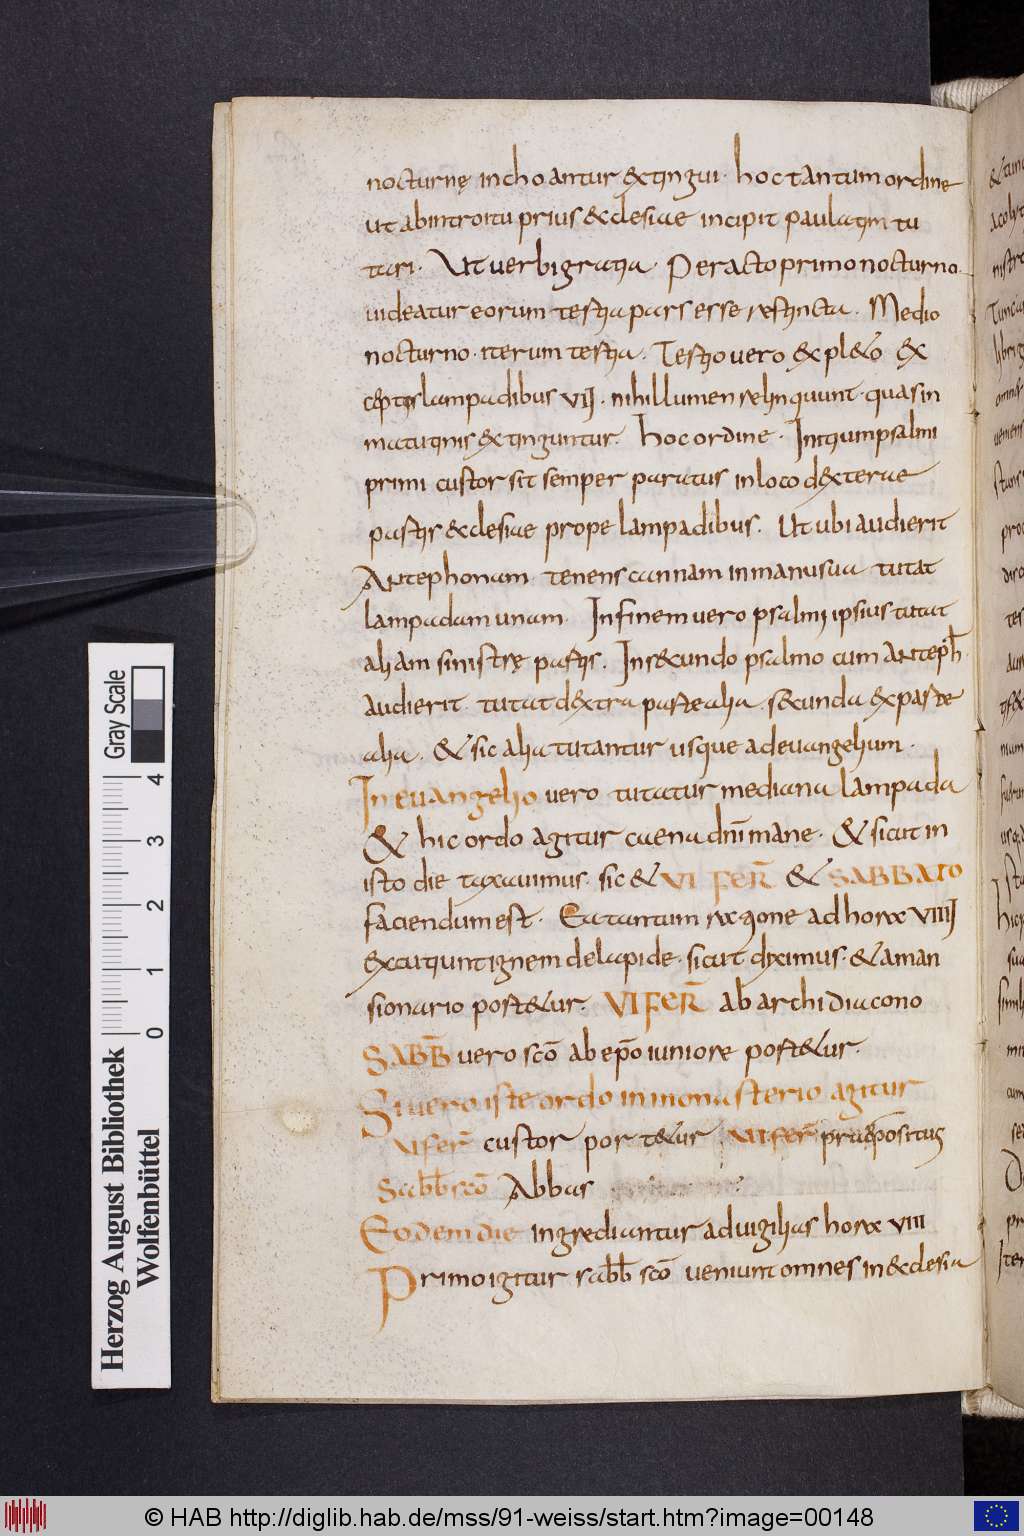 nocturnę inchoantur extingui. hoc tantum ordine
ut ab introitu prius ecclesiae incipit paulatim tu
tari. Ut verbi gratia. Peracto primo nocturno.
uideatur eorum tertia pars esse restincta. Medio
nocturno. iterum tertia. Tertio uero expleto ex
ceptis lampadibus VII. nihil lumen relinquunt. quas in
matutinis extinguntur. hoc ordine. Initium psalmi
primi custor sit semper paratus in loco dexterae
partis ecclesiae prope lampadibus. Ut ubi audierit
Antephonam tenens cannam in manu sua tutat
lampadam unam. In finem uero psalmi ipsius tutat
aliam sinistrę partis. In secundo psalmo cum anteph
audierit tutat dextra parte alia. secunda ex parte
alia. & sic alia tutantur usque ad euangelium.
In euangelio uero tutatur mediana lampada
& hic ordo agitur caena dnī mane. & sicut in
isto die taxauimus. sic & VI FER̄ & SABBATO
faciendum est. Ea tantum ratione ad hora VIIII
excutiunt ignem de lapide. sicut diximus. & a man
sionario portetur. VI FER̄ ab archidiacono
SABB̄ uero scō ab epō iuniore portetur.
Si uero iste ordo in monasterio agitur
VI fer̄ custor portetur VII fer̄ praepositus
Sabb̄ scō Abbas
Eodem die ingrediantur ad uigilias hora VIII
Primo igitur sabb̄ scō ueniunt omnes in ecclesia
Gray Scale
4
3
2
1
0
Herzog August Bibliothek
Wolfenbüttel
© HAB http://diglib.hab.de/mss/91-weiss/start.htm?image=00148